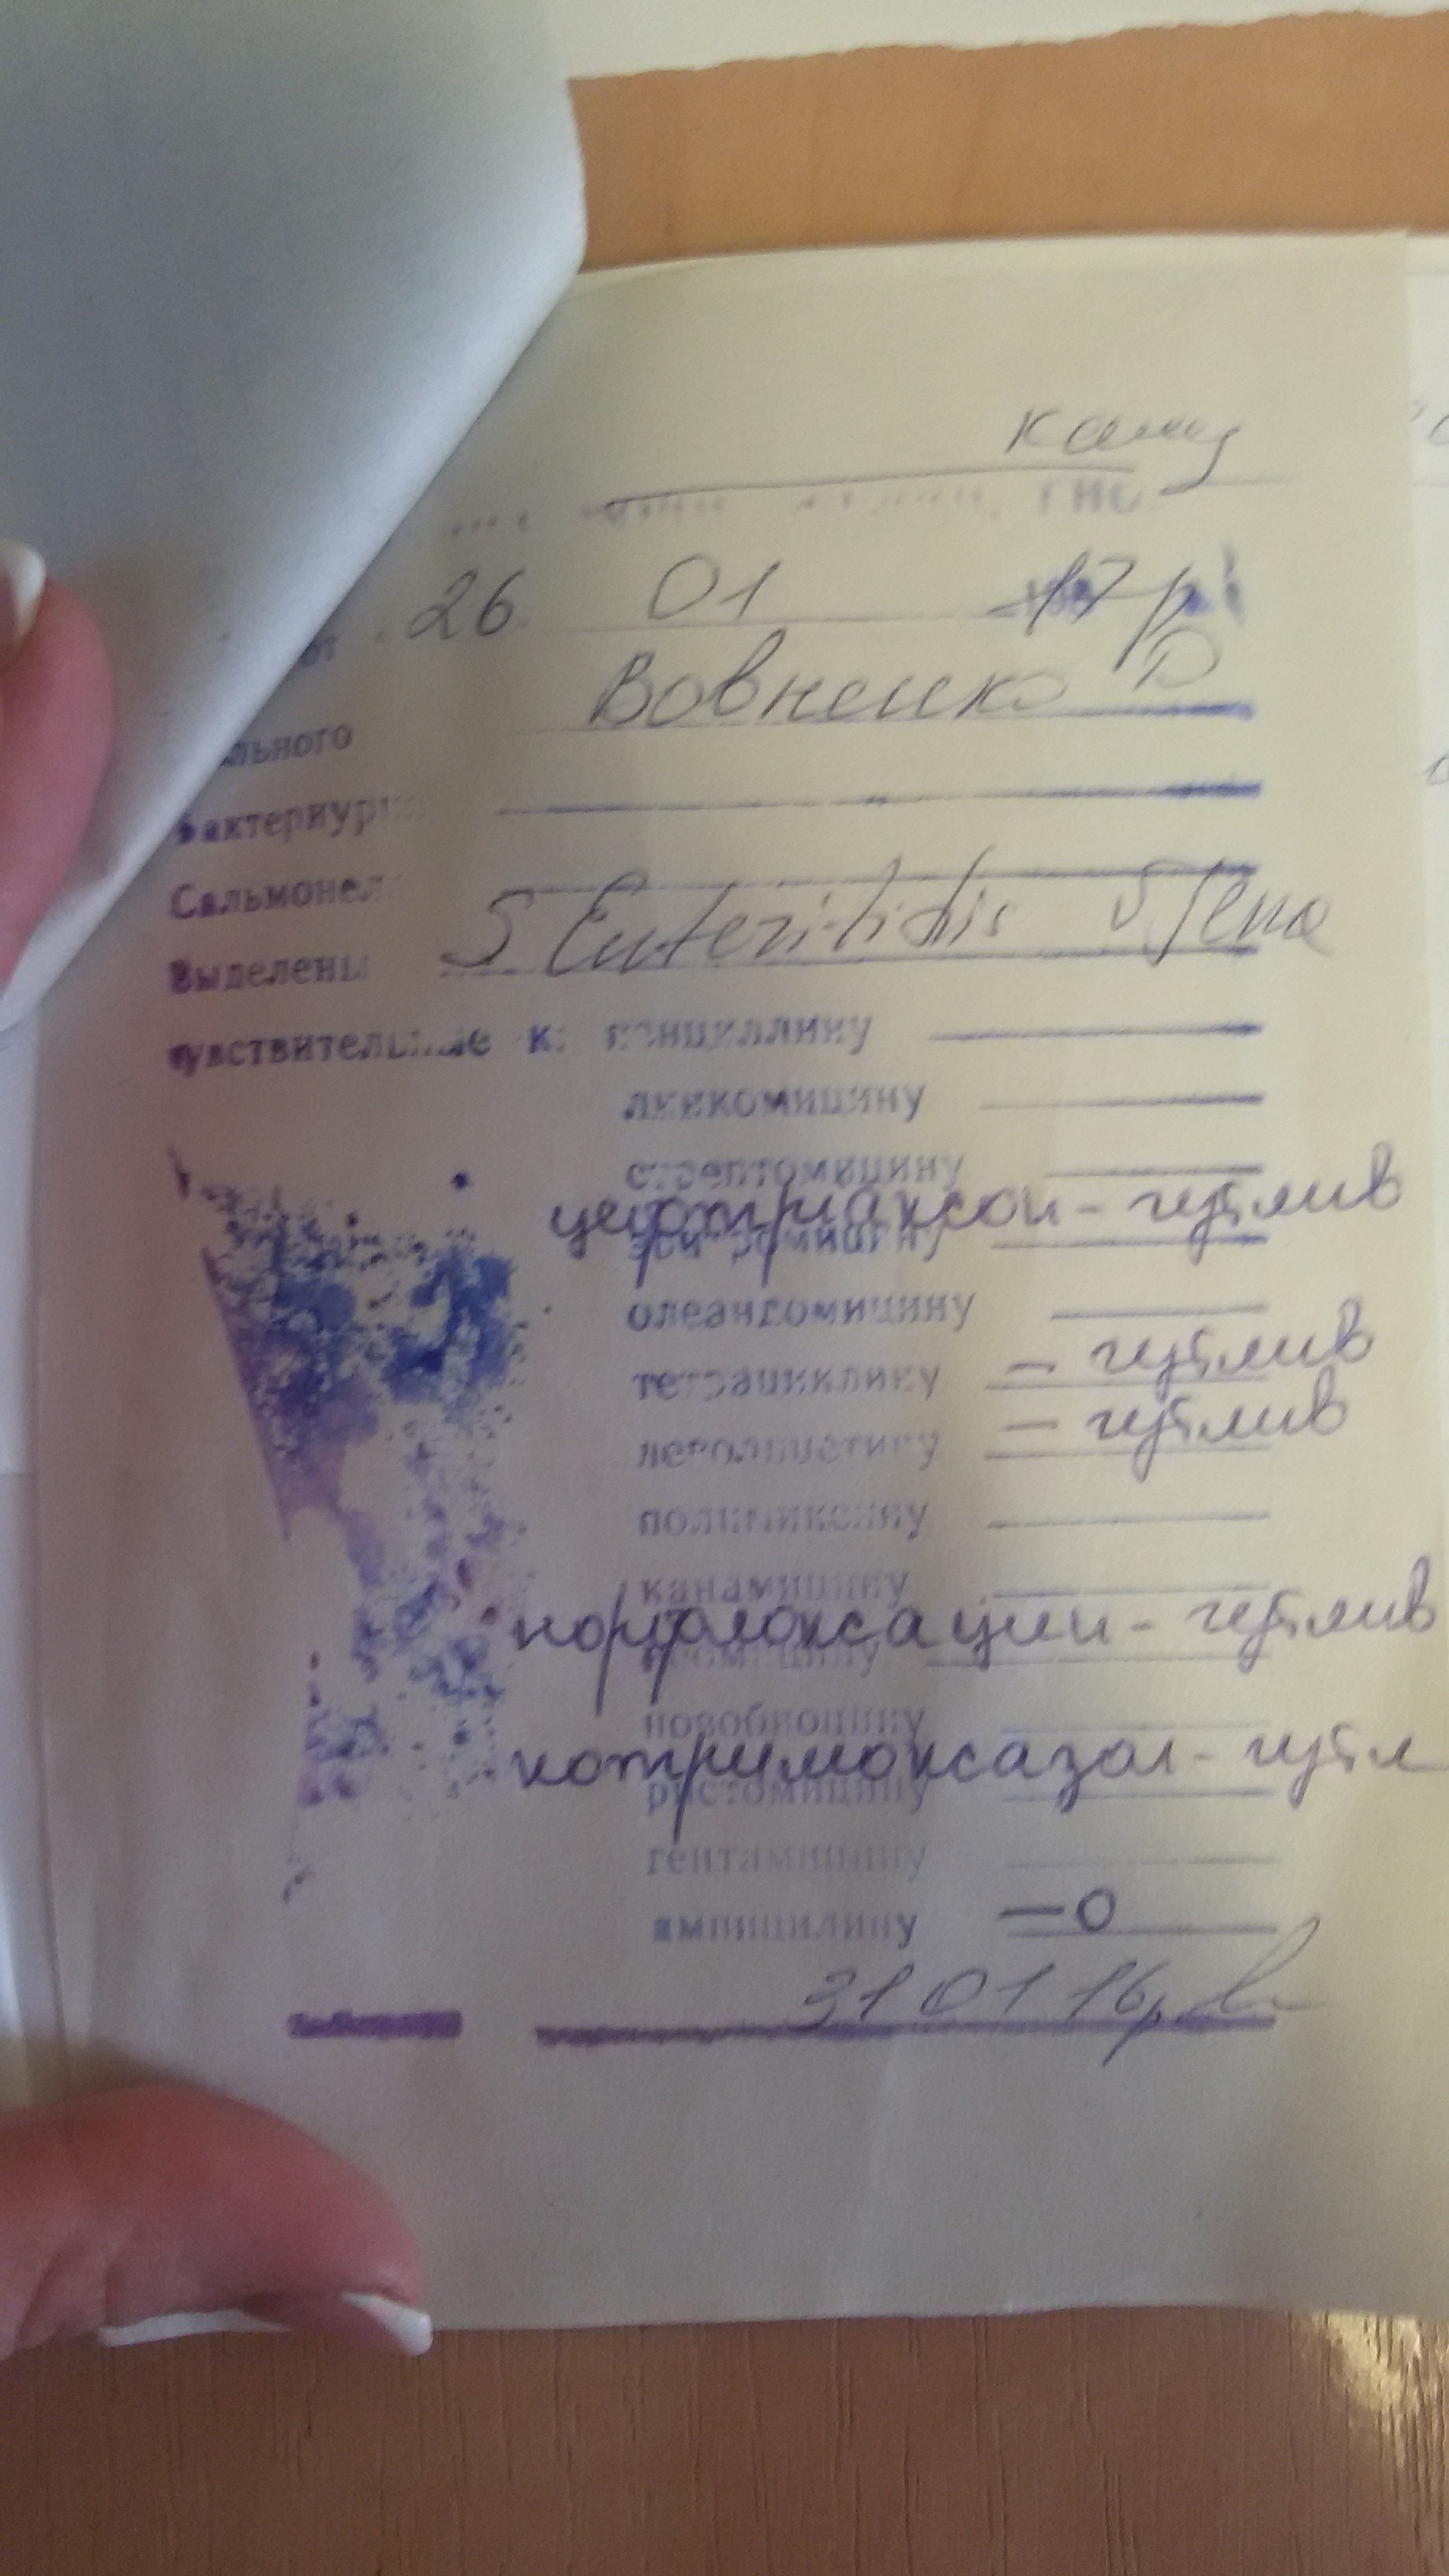 от 26 01 17р
льного Вовненко
Бактериурия
Сальмонел
Выделены S Enteritidis
чувствительные к: пенициллину
линкомицину
стрептомицину
цефтриаксон - чутлив
эритромицину
олеандомицину
тетрациклину - чутлив
левомицетину - чутлив
полимиксину
канамицину
норфлоксацин - чутлив
неомицину
новобиоцину
котримоксазол - чутл
ристомицину
гентамицину
ампицилину - 0
31 01 16р